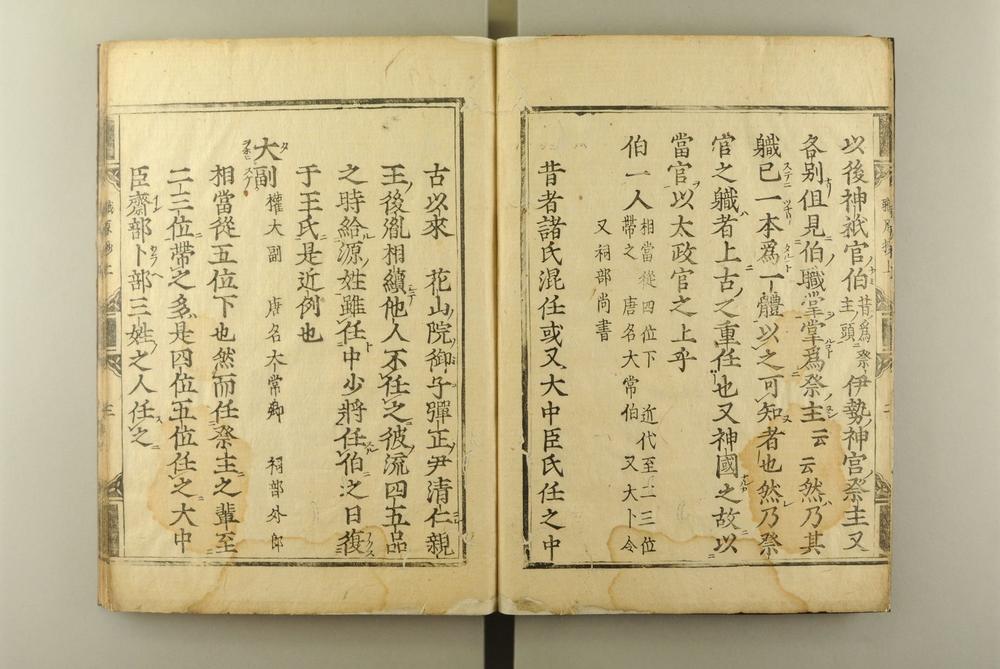 以後神祇官伯昔為祭主頭伊勢神宮祭主又
各別但見伯職掌掌為祭主云云然乃其
職已一本為一體以之可知者也然乃祭
官之職者上古之重任也又神國之故以
當官以太政官之上乎
伯一人相當從四位下 近代至二三位
帶之 唐名大常伯 又大卜令
又祠部尚書
昔者諸氏混任或又大中臣氏任之中
古以來 花山院御子彈正尹清仁親
王後胤相續他人不任之彼流四五品
之時給源姓雖任中少將任伯之日復
于王氏是近例也
大副權大副 唐名大常卿 祠部外郎
相當從五位下也然而任祭主之輩至
二三位帶之多是四位五位任之大中
臣齋部卜部三姓之人任之